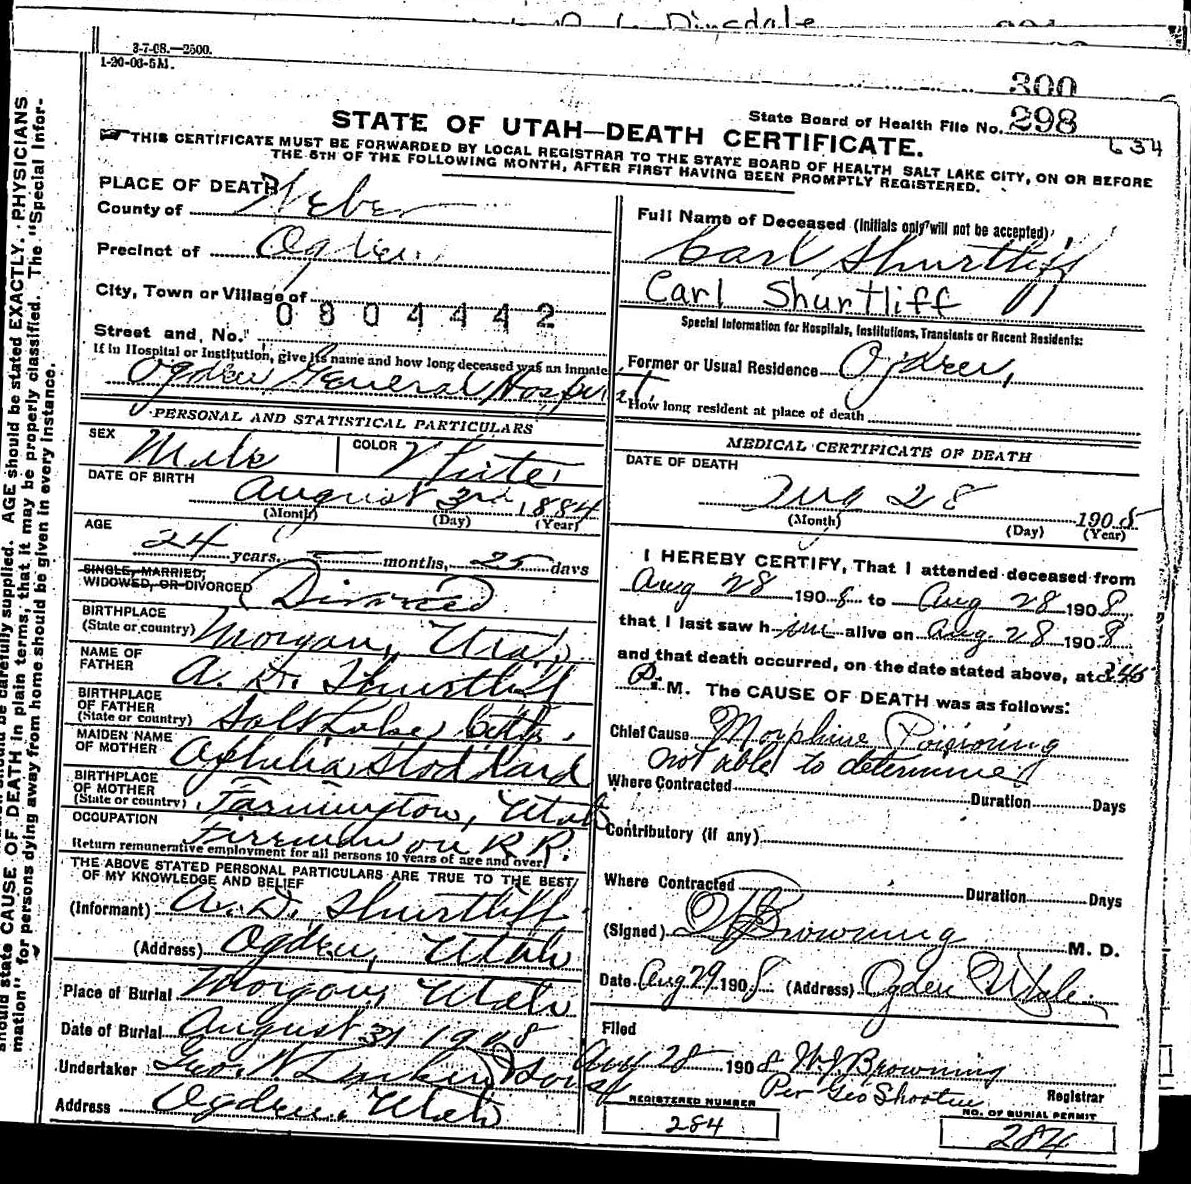 Dinsdale
3-7-08.—2500.
1-20-06-5M.
300
State Board of Health File No. 298
634
STATE OF UTAH—DEATH CERTIFICATE.
THIS CERTIFICATE MUST BE FORWARDED BY LOCAL REGISTRAR TO THE STATE BOARD OF HEALTH SALT LAKE CITY, ON OR BEFORE
THE 5TH OF THE FOLLOWING MONTH, AFTER FIRST HAVING BEEN PROMPTLY REGISTERED.
PLACE OF DEATH
County of Weber
Precinct of Ogden
City, Town or Village of
0804442
Street and, No.
If in Hospital or Institution, give its name and how long deceased was an inmate
Ogden General Hospital
PERSONAL AND STATISTICAL PARTICULARS
SEX Male COLOR White
DATE OF BIRTH
August 3rd, 1884
(Month) (Day) (Year)
AGE
24 years, 5 months, 25 days
SINGLE, MARRIED,
WIDOWED, OR DIVORCED Divorced
BIRTHPLACE
(State or country) Morgan, Utah
NAME OF
FATHER A. D. Shurtliff
BIRTHPLACE
OF FATHER
(State or country) Salt Lake City.
MAIDEN NAME
OF MOTHER Stoddard
BIRTHPLACE
OF MOTHER
(State or country) Farmington, Utah
OCCUPATION
Fireman on R R.
Return remunerative employment for all persons 10 years of age and over
THE ABOVE STATED PERSONAL PARTICULARS ARE TRUE TO THE BEST
OF MY KNOWLEDGE AND BELIEF
(Informant) A. D. Shurtliff
(Address) Ogden, Utah
Place of Burial Morgan, Utah
Date of Burial August 31 1908
Undertaker Geo. W Larkin & Sons
Address Ogden, Utah
Full Name of Deceased (Initials only will not be accepted)
Carl Shurtliff
Carl Shurtliff
Special Information for Hospitals, Institutions, Transients or Recent Residents:
Former or Usual Residence Ogden,
How long resident at place of death
MEDICAL CERTIFICATE OF DEATH
DATE OF DEATH
Aug 28 1908
(Month) (Day) (Year)
I HEREBY CERTIFY, That I attended deceased from
Aug 28 1908 to Aug 28 1908,
that I last saw him alive on Aug. 28 1908
and that death occurred, on the date stated above, at
P. M. The CAUSE OF DEATH was as follows:
Chief Cause Morphine Poisioning
not able to determine
Where Contracted Duration Days
Contributory (if any)
Where Contracted Duration Days
(Signed) Browning M. D.
Date Aug 29 1908 (Address) Ogden Utah.
Filed
Aug 28 1908 W. J. Browning
Per Geo Shorten Registrar
REGISTERED NUMBER
284
NO. OF BURIAL PERMIT
284
should be carefully supplied. AGE should be stated EXACTLY. PHYSICIANS
should state CAUSE OF DEATH in plain terms, that it may be properly classified. The "Special Infor-
mation" for persons dying away from home should be given in every instance.